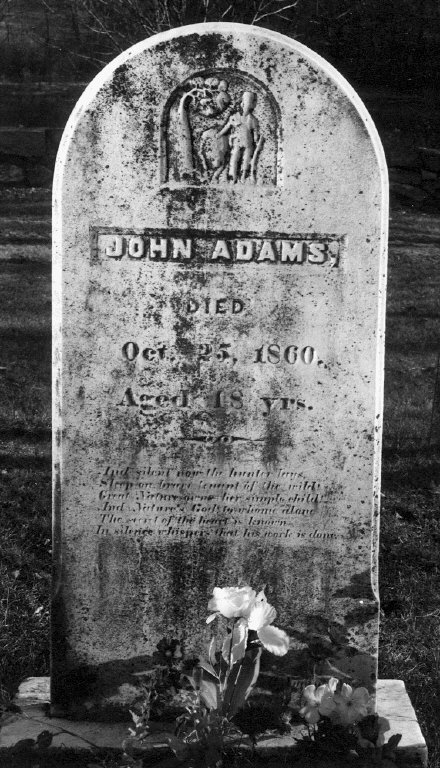 JOHN ADAMS,
DIED
Oct. 25, 1860.
Aged 48 yrs.
And silent now the hunter lays,
Sleep on, brave tenant of the wild!
Great Nature owns her simple child!
And Nature's God, to whom alone
The secret of the heart is known,
In silence whispers that his work is done.